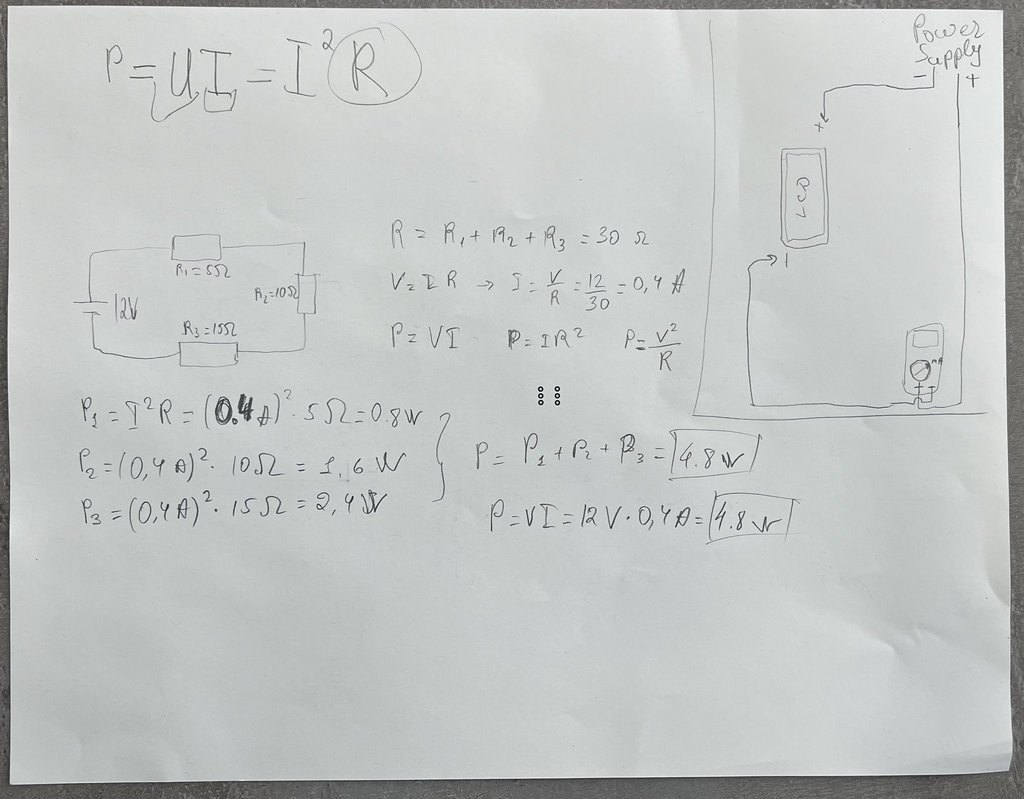 P = UI = I²R
Power
Supply
- +
+
LCD
-
mA
R₁=5Ω
12V
R₂=10Ω
R₃=15Ω
R = R₁ + R₂ + R₃ = 30 Ω
V = I R → I = V/R = 12/30 = 0,4 A
P = VI P = IR² P = V²/R
P₁ = I²R = (0.4A)² · 5Ω = 0.8W
P₂ = (0,4A)² · 10Ω = 1,6 W
P₃ = (0,4A)² · 15Ω = 2,4W
P = P₁ + P₂ + P₃ = 4.8W
P = VI = 12V · 0,4A = 4.8W